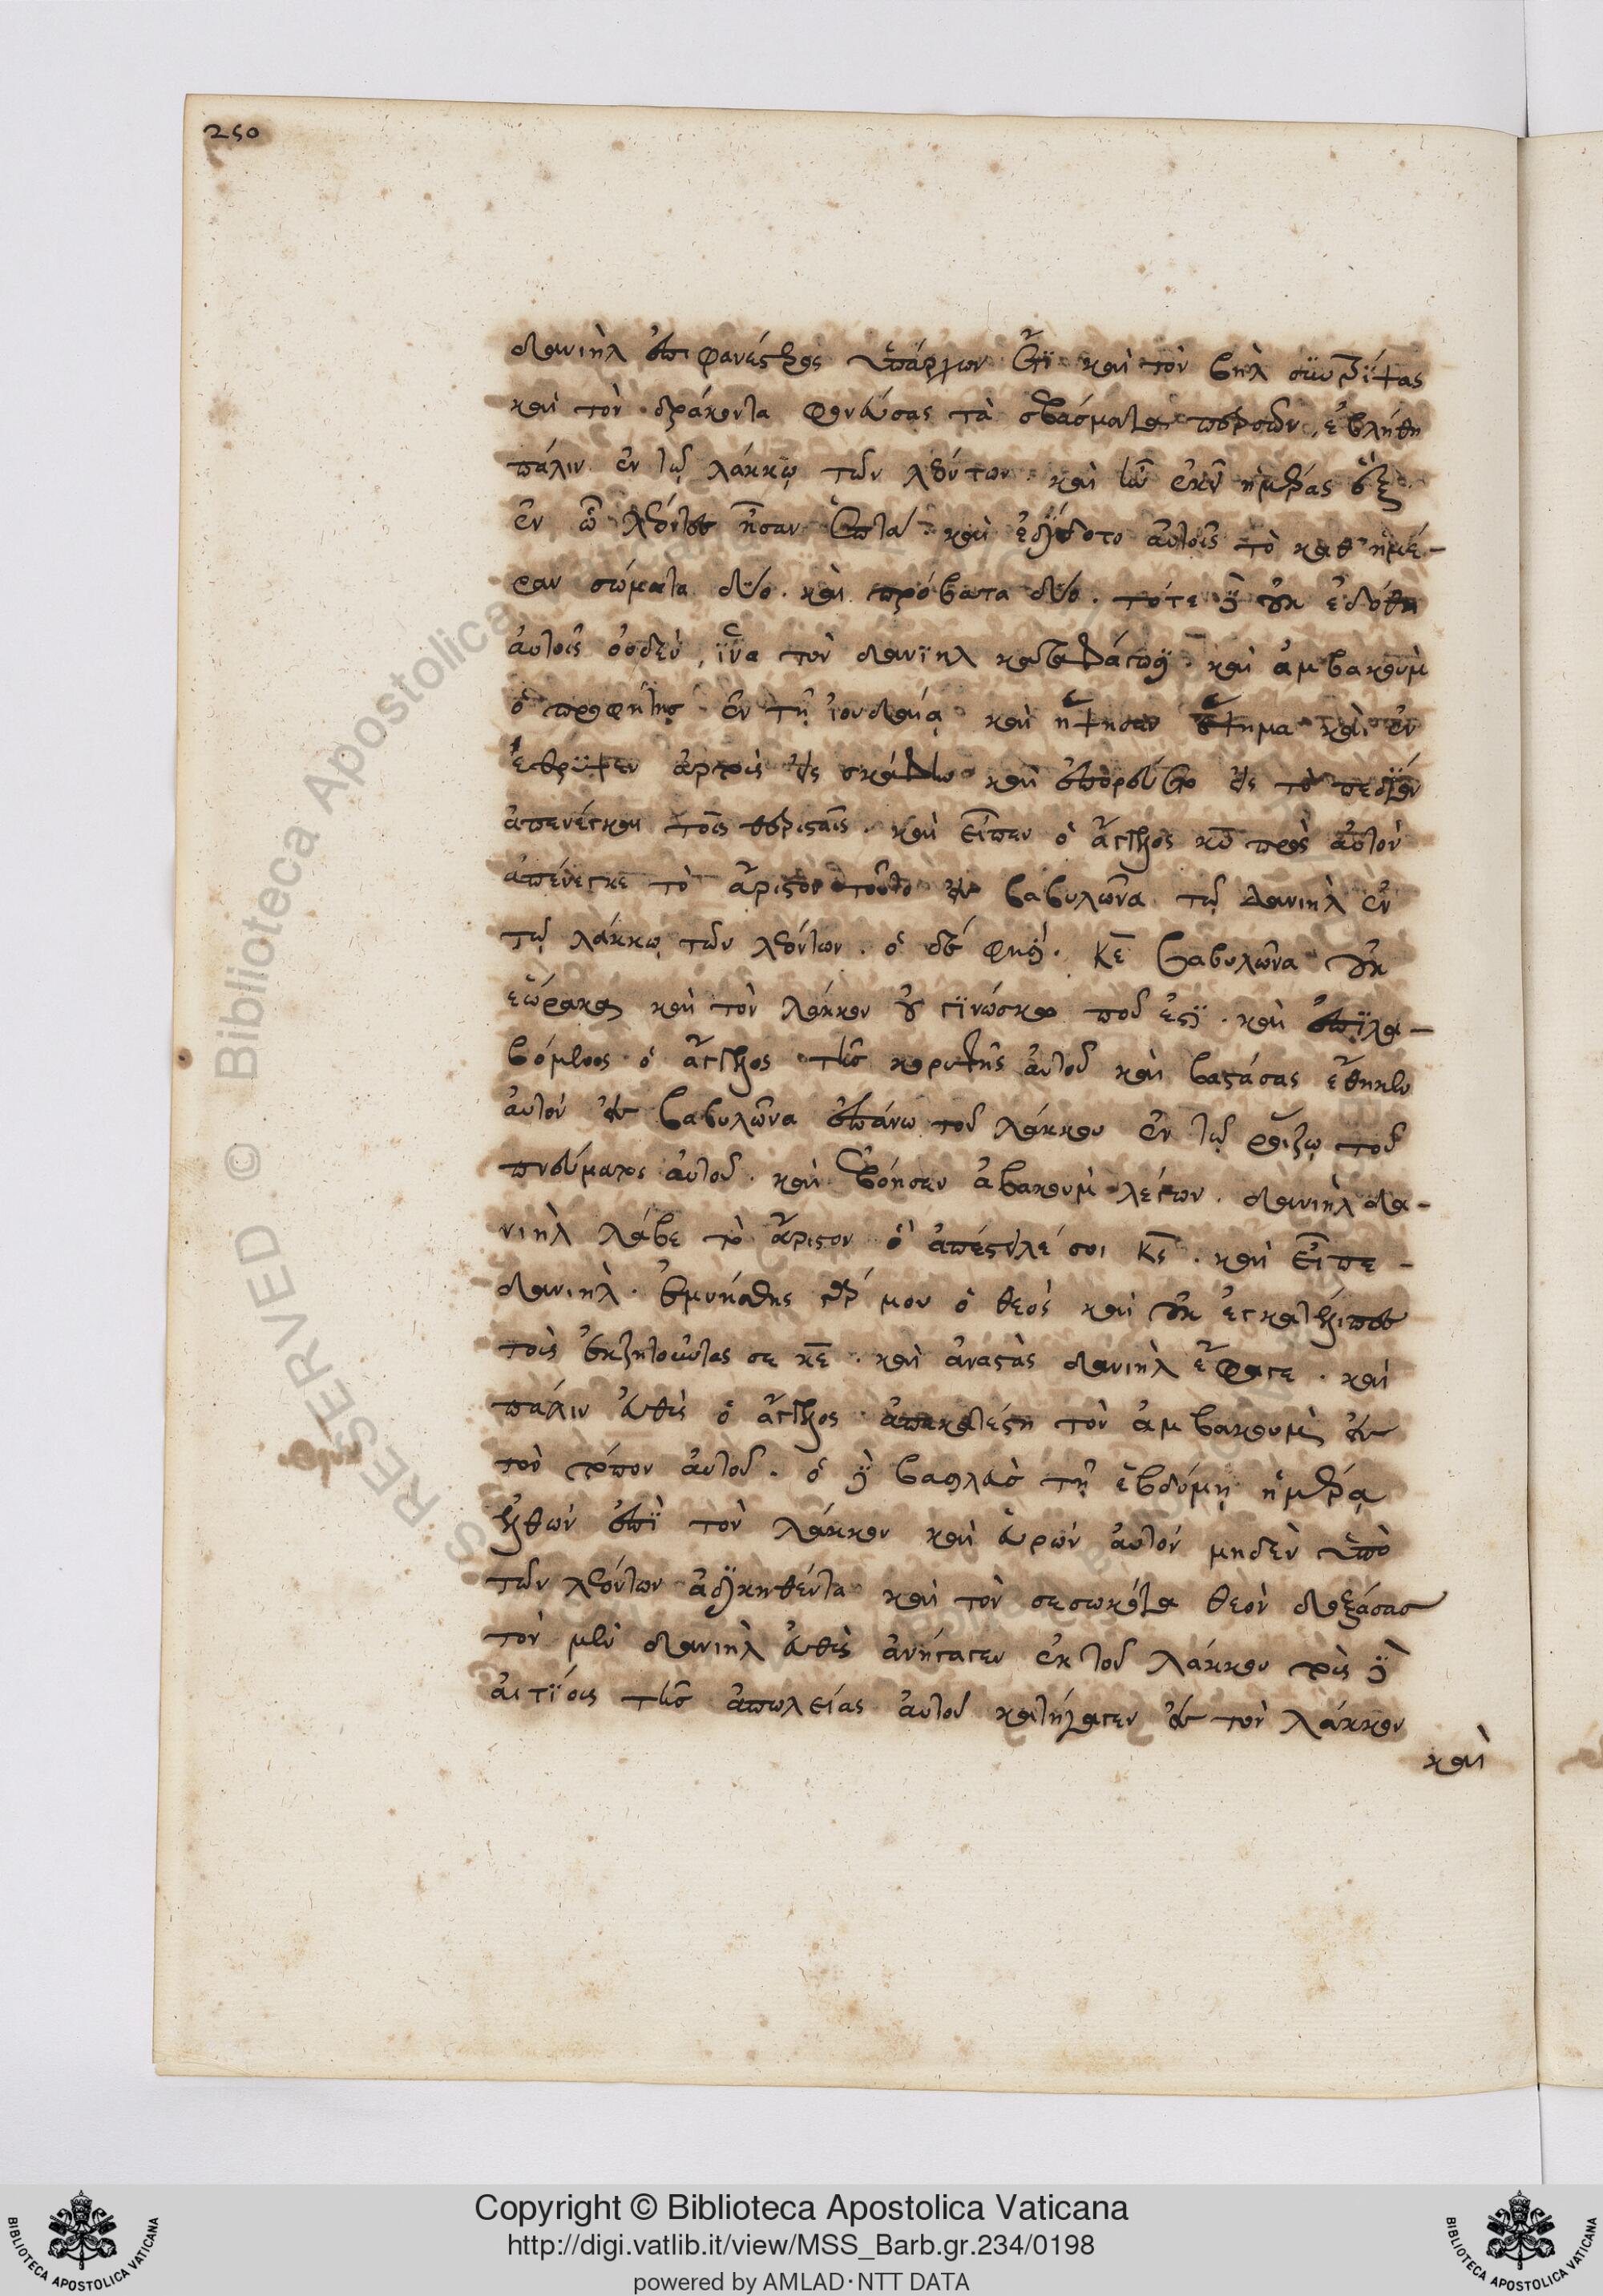 250
δανιὴλ ἐπιφανέστερος ὑπάρχων ὅτϊ καὶ τὸν βὴλ σϋντρίψας
καὶ τὸν δράκοντα φονεύσας τὰ σεβάσματα περσῶν, ἐβλήθη
πάλιν ἐν τῷ λάκκῳ τῶν λεόντων. καὶ ἦν ἐκεῖ ἡμέρας ἕξ.
ἐν ᾧ λέοντες ἦσαν ἑπτά. καὶ ἐδίδοτο αὐτοῖς τὸ καθ' ἡμέ-
ραν σώματα δύο. καὶ πρόβατα δύο. τότε δὲ οὐκ ἐδόθη
αὐτοῖς οὐδὲν, ἵνα τὸν δανϊηλ καταφάγωσι. καὶ ἀμβακοὺμ
ὁ προφήτης ἐν τῇ ἰουδαίᾳ καὶ ἥψησεν ἕψημα καὶ ἐν
έθρυψεν ἄρτοις εἰς σκάφην καὶ ἐπορεύετο εἰς τὸ πεδίον
ἀπενέγκαι τοῖς θερισταῖς. καὶ εἶπεν ὁ ἄγγελος κυ πρὸς αὐτὸν
ἀπένεγκε τὸ ἄριστον τοῦτο εἰς βαβυλῶνα τῷ δανιὴλ ἐν
τῷ λάκκῳ τῶν λεόντων. ὁ δέ φησι. κε βαβυλῶνα οὐκ
εὥρακα καὶ τὸν λάκκον οὐ γϊνώσκω ποῦ ἐστϊ. καὶ ἐπϊλα-
βόμενος ὁ ἄγγελος τῆς κορυφῆς αὐτοῦ καὶ βαστάσας ἔθηκεν
αὐτὸν εἰς βαβυλῶνα ἐπάνω τοῦ λάκκου ἐν τῷ ροίζῳ τοῦ
πνεύματος αὐτοῦ. καὶ ἐβόησεν ἀβακοὺμ λέγων. δανιὴλ δα-
νιὴλ λάβε τὸ ἄριστον ὃ ἀπέστειλέ σοι κς. καὶ εἶπε -
δανιὴλ. ἐμνήσθης γάρ μου ὁ θεὸς καὶ οὐκ ἐγκατέλιπες
τοὺς ἐκζητοῦντας σε κε. καὶ ἀναστὰς δανιὴλ ἔφαγε. καὶ
πάλιν εὐθὺς ὁ ἄγγελος ἀπεκατέστη τὸν ἀμβακοὺμ εἰς
τὸν τόπον αὐτοῦ. ὁ δὲ βασιλεὺς τῇ ἑβδόμῃ ἡμέρᾳ
ἐλθὼν ἐπὶ τὸν λάκκον καὶ εὑρὼν αὐτὸν μηδὲν ὑπὸ
τῶν λεόντων ἀδϊκηθέντα καὶ τὸν σεσωκότα θεὸν δοξάσας
τὸν μὲν δανιὴλ εὐθὺς ἀνήγαγεν ἐκ τοῦ λάκκου τοὺς δὲ
αἰτϊους τῆς ἀπωλείας αὐτοῦ κατήγαγεν εἰς τὸν λάκκον
καὶ
RESERVED © Biblioteca Apostolica
Copyright © Biblioteca Apostolica Vaticana
http://digi.vatlib.it/view/MSS_Barb.gr.234/0198
powered by AMLAD·NTT DATA
BIBLIOTECA APOSTOLICA VATICANA
BIBLIOTECA APOSTOLICA VATICANA